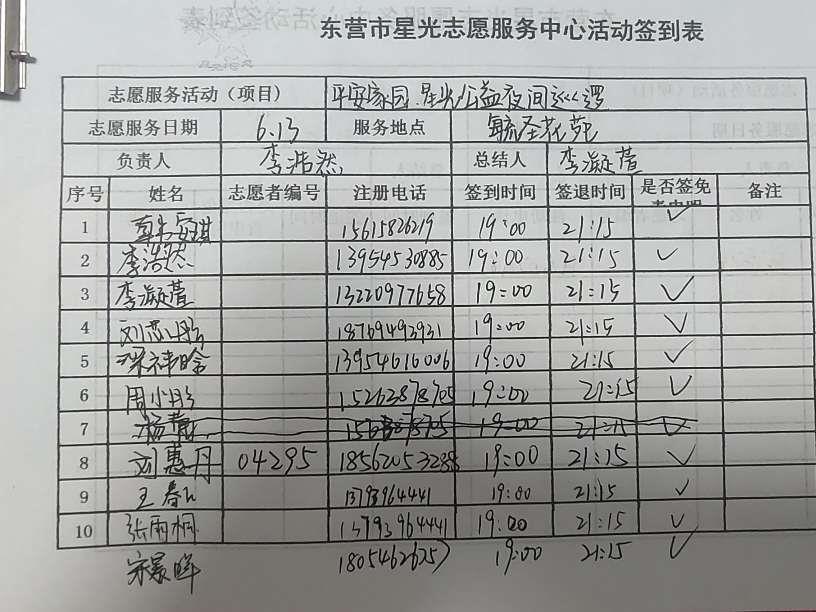 东营市星光志愿服务中心活动签到表
志愿服务活动（项目） 平安家园.星光公益夜间巡逻
志愿服务日期 6.13 服务地点 毓圣花苑
负责人 李浩然 总结人 李凝萱
序号 姓名 志愿者编号 注册电话 签到时间 签退时间 是否签免 备注
1 15615826219 19:00 21:15 ✓
2 李浩然 13954530885 19:00 21:15 ✓
3 李凝萱 13220977658 19:00 21:15 ✓
4 刘芯彤 18769493931 19:00 21:15 ✓
5 13954616006 19:00 21:15 ✓
6 周小彤 15262878705 19:00 21:15 ✓
7 19:00 21:15 ✓
8 刘惠丹 04295 18562053288 19:00 21:15 ✓
9 王春 1379964441 19:00 21:15 ✓
10 张雨桐 13793964441 19:00 21:15 ✓
宋景晖 19:00 21:15 ✓